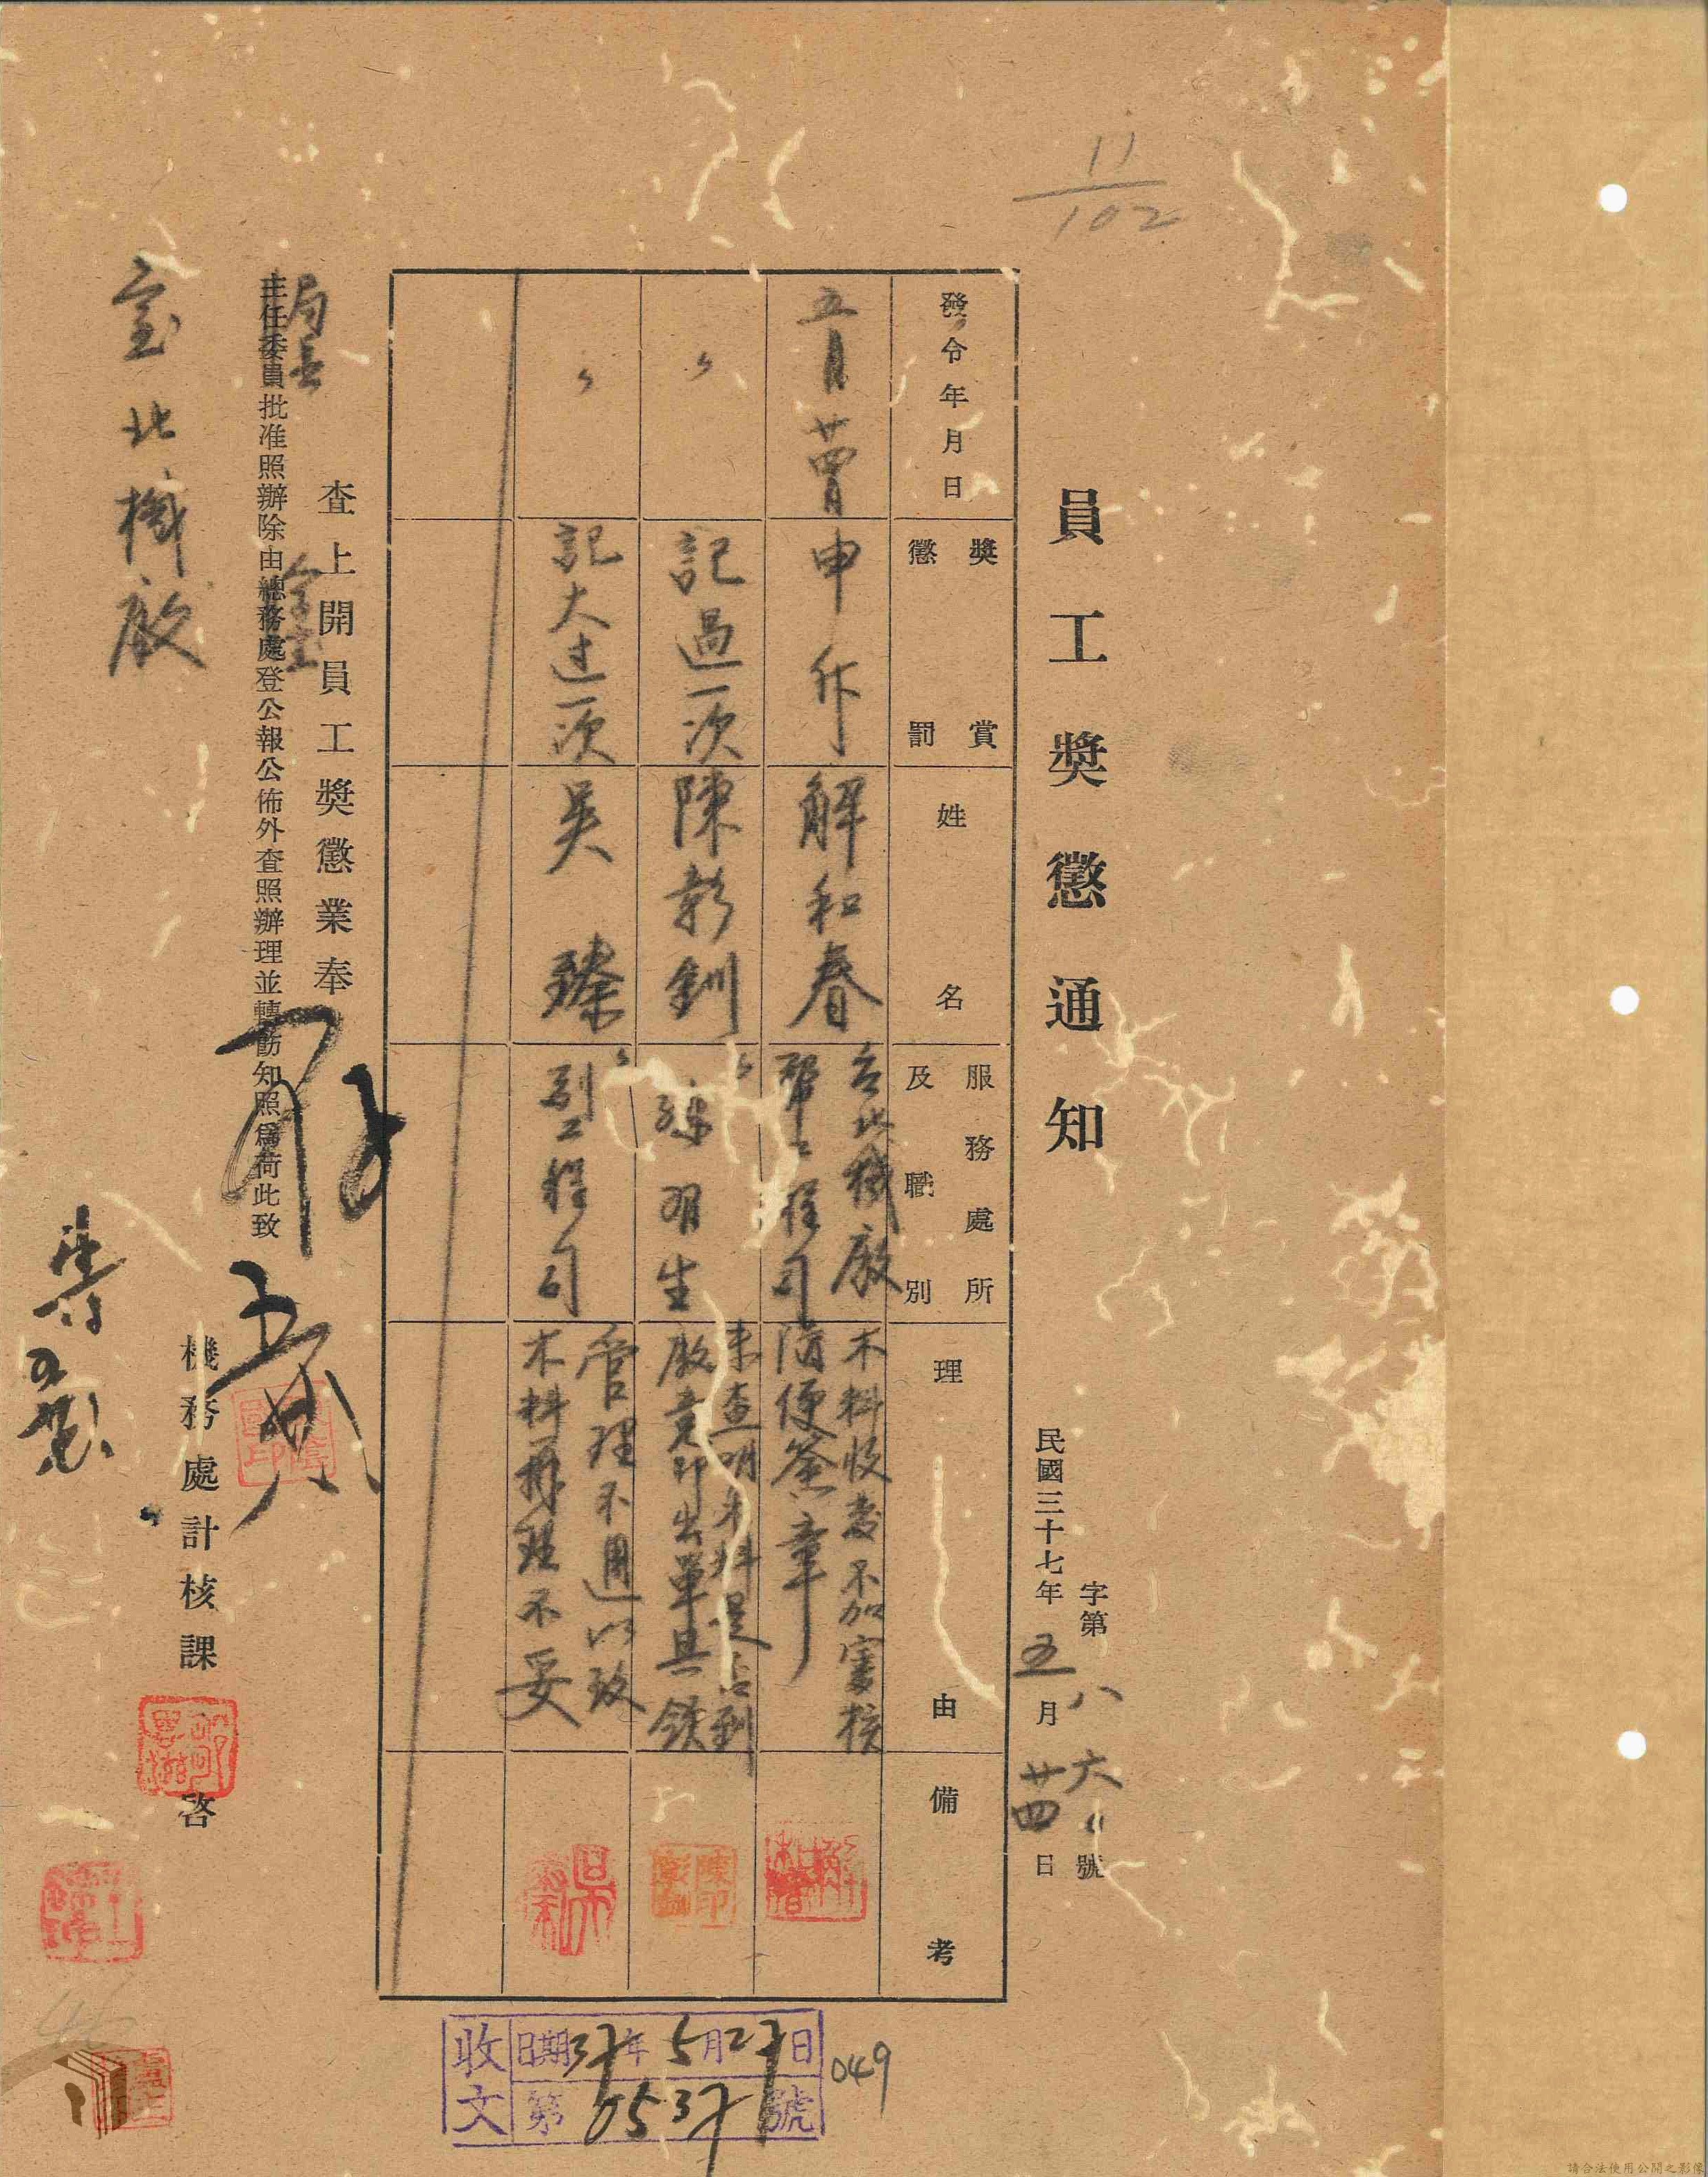 11/102
員工獎懲通知
字第八六〃號
民國三十七年五月廿四日
發令年月日
獎賞
懲罰
姓名
服務處所
及職別
理由
備考
五月廿四日
申斥
解和春
台北機廠
幫工程司
木料收發不加審核
隨便簽章
〃
記過一次
陳彭釧
〃
練習生
未查明木料是否到
廠竟印出單具領
〃
記大过一次
吳臻
〃
副工程司
管理不週以致
木料務理不妥
查上開員工獎懲業奉
局長
主任委員批准照辦除由總務處登公報公佈外查照辦理並轉飭知照爲荷此致
台北機廠
機務處計核課啓
收文
日期37年5月27日
第0537號
049
請合法使用公開之影像